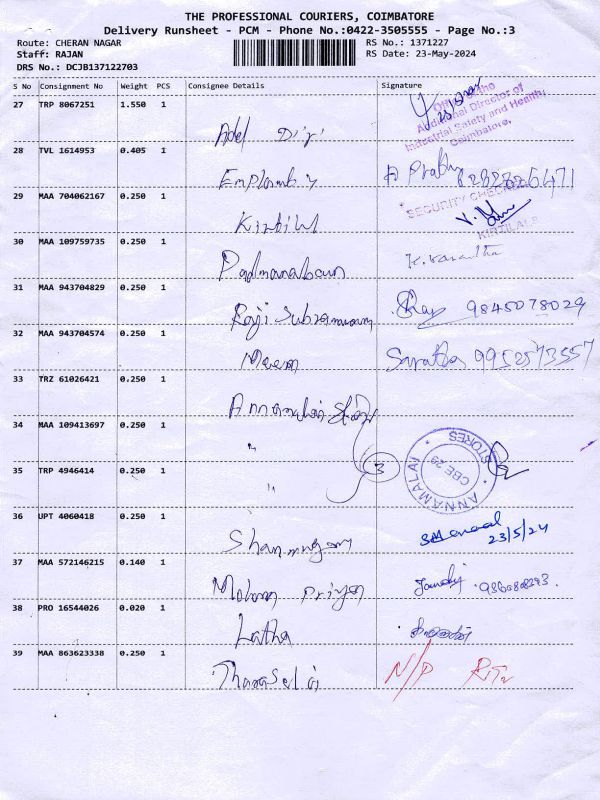 THE PROFESSIONAL COURIERS, COIMBATORE
Delivery Runsheet - PCM - Phone No.:0422-3505555 - Page No.:3
Route: CHERAN NAGAR RS No.: 1371227
Staff: RAJAN RS Date: 23-May-2024
DRS No.: DCJB137122703
S No Consignment No Weight PCS Consignee Details Signature
27 TRP 8067251 1.550 1
Additional Director of
Industrial Safety and Health,
Coimbatore.
28 TVL 1614953 0.405 1
A Prabhu
29 MAA 704062167 0.250 1
SECURITY CHECKED
KIRTILALS
30 MAA 109759735 0.250 1
Padmanaban K. Vasantha
31 MAA 943704829 0.250 1
Roji Subramaniam 9845078029
32 MAA 943704574 0.250 1
Meera Saratha 9952573557
33 TRZ 61026421 0.250 1
Annamalai Stores
34 MAA 109413697 0.250 1
"
ANNAMALAI STORES
CBE 29
35 TRP 4946414 0.250 1
" 3
36 UPT 4060418 0.250 1
Shanmugam 23/5/24
37 MAA 572146215 0.140 1
Mohana Priya
38 PRO 16544026 0.020 1
Latha
39 MAA 863623338 0.250 1
N/P